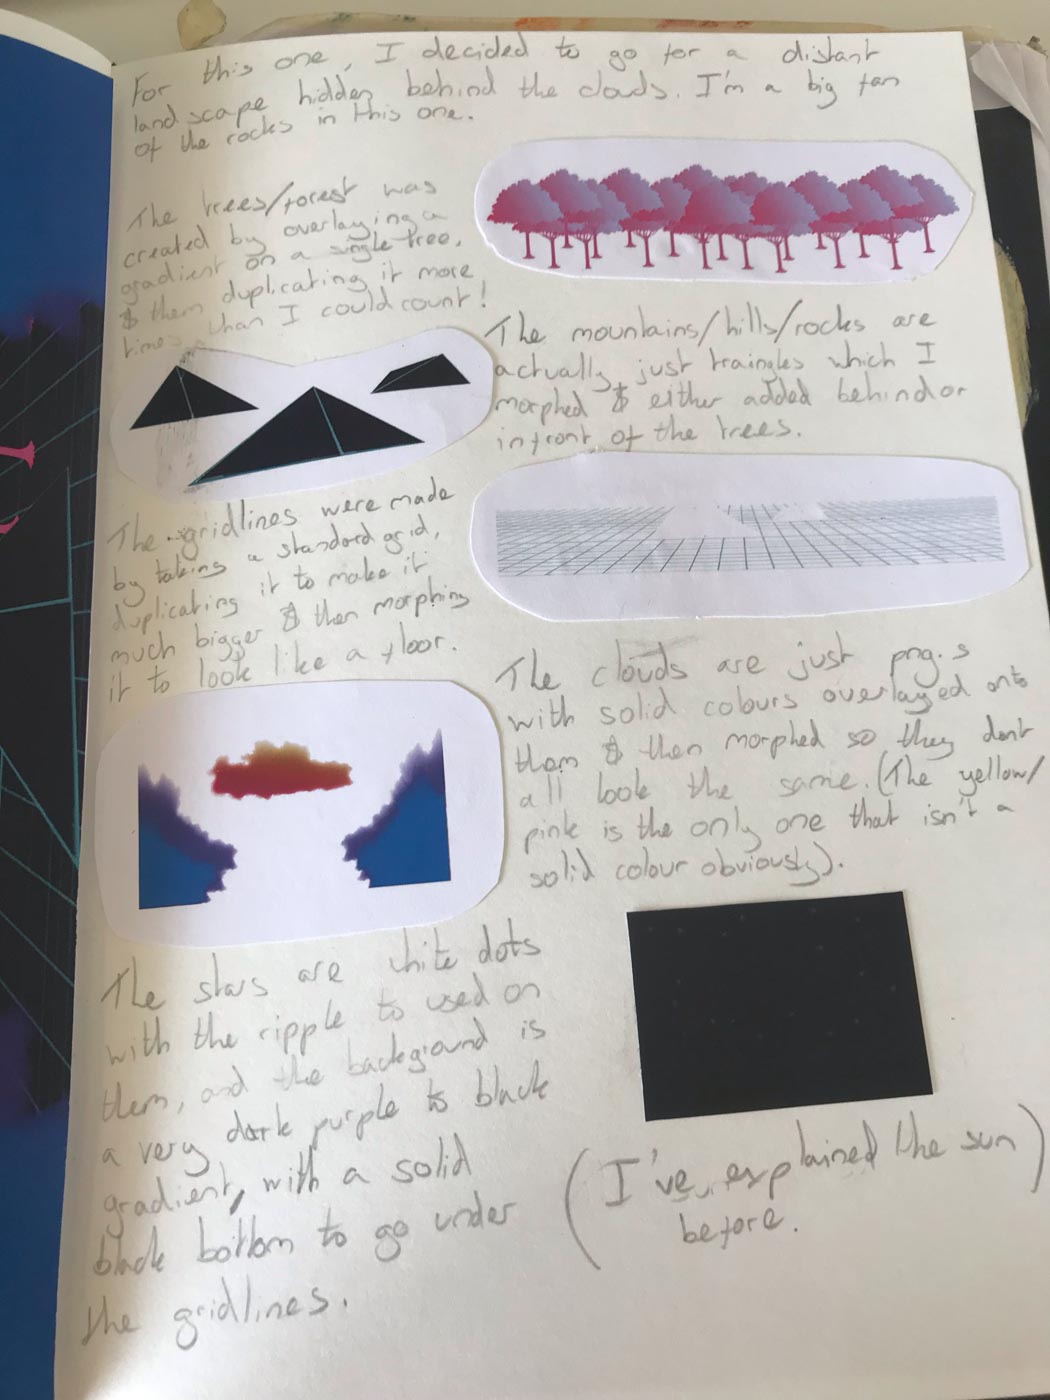 For this one, I decided to go for a distant
landscape hidden behind the clouds. I'm a big fan
of the rocks in this one.
The trees/forest was
created by overlaying a
gradient on a single tree,
& them duplicating it more
times than I could count!
The mountains/hills/rocks are
actually just traingles which I
morphed & either added behind or
infront of the trees.
The gridlines were made
by taking a standard grid,
duplicating it to make it
much bigger & then morphing
it to look like a floor.
The clouds are just png.s
with solid colours overlayed onto
them & then morphed so they dont
all look the same. (The yellow/
pink is the only one that isn't a
solid colour obviously).
The stars are white dots
with the ripple to used on
them, and the background is
a very dark purple to black
gradient, with a solid
black bottom to go under
the gridlines.
(I've explained the sun
before.)